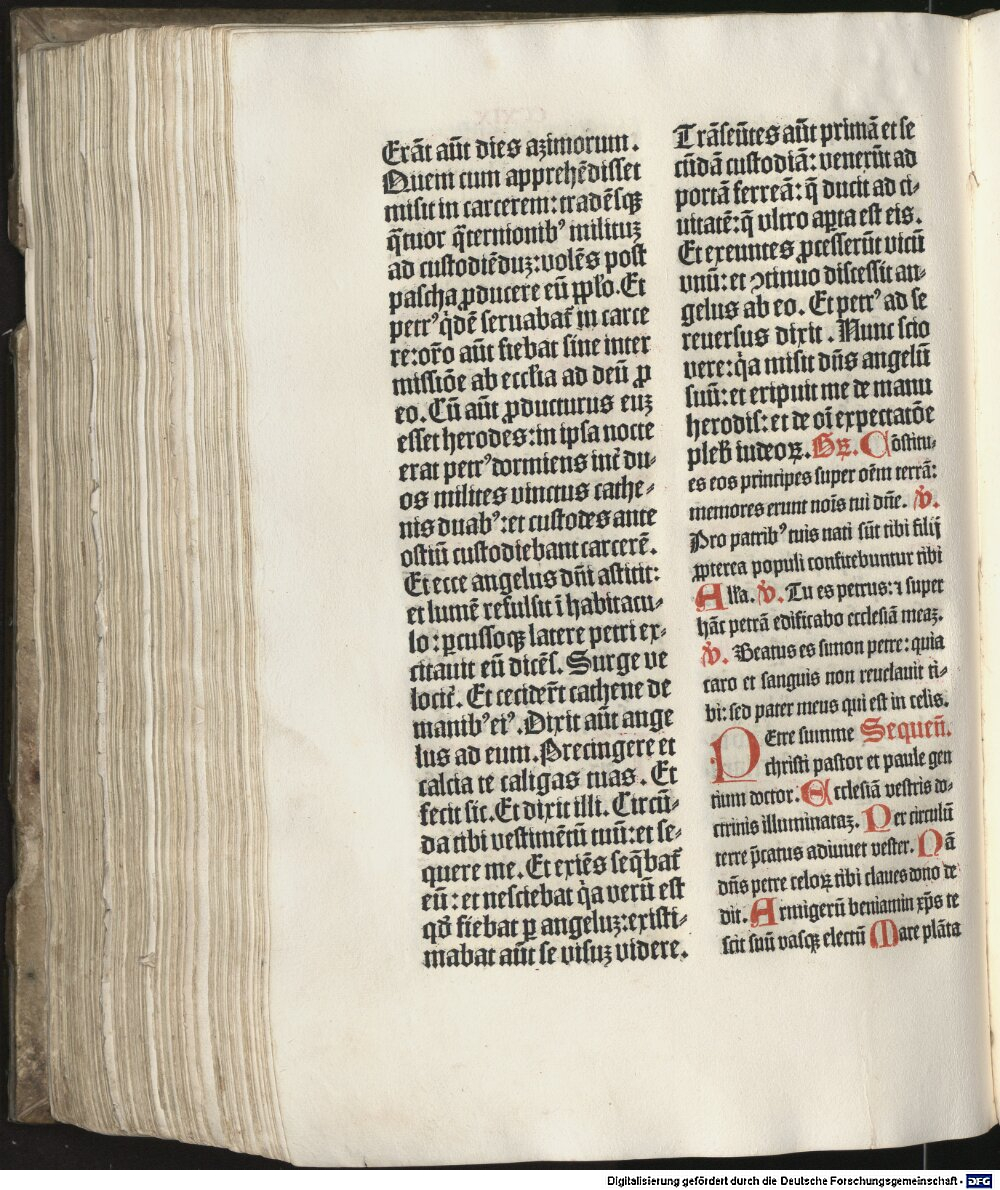 Erāt aūt dies azimorum.
Quem cum apprehēdisset
misit in carcerem: tradēsqꝫ
q̄tuor q̄ternionibꝰ milituꝫ
ad custodiēduꝫ: volēs post
pascha ꝓducere eū pplo. Et
petrꝰ q̇dē seruabat̄ in carce
re: oro aūt fiebat sine inter
missiōe ab ecclia ad deū ꝓ
eo. Cū aūt ꝓducturus euꝫ
esset herodes: in ipsa nocte
erat petrꝰ dormiens int̄ du-
os milites vinctus cathe-
nis duabꝰ: et custodes ante
ostiū custodiebant carcerē.
Et ecce angelus dn̄i astitit:
et lumē refulsit ī habitacu-
lo: ꝑcussoqꝫ latere petri ex-
citauit eū dicēs. Surge ve
locit̄. Et cecider̄t cathene de
manibꝰ eiꝰ. Dixit aūt ange
lus ad eum. Precingere et
calcia te caligas tuas. Et
fecit sic. Et dixit illi. Circū-
da tibi vestimētū tuū: et se-
quere me. Et exiēs seq̄bat̄
eū: et nesciebat q̇a verū est
qd̄ fiebat ꝑ angeluꝫ: existi-
mabat aūt se visuꝫ videre.
Trāseūtes aūt primā et se
cūdā custodiā: venerūt ad
portā ferreā: q̄ ducit ad ci-
uitatē: q̄ vltro aꝑta est eis.
Et exeuntes ꝓcesserūt vicū
vnū: et ꝯtinuo discessit an-
gelus ab eo. Et petrꝰ ad se
reuersus dixit. Nunc scio
vere: q̇a misit dn̄s angelū
suū: et eripuit me de manu
herodis: et de oī expectatōe
pleb̄ iudeoꝝ. Gꝝ. Cōstitu-
es eos principes super oēm terrā:
memores erunt nois tui dn̄e. ℣.
Pro patribꝰ tuis nati sūt tibi filij
ꝓpterea populi confitebuntur tibi
Alla. ℣. Tu es petrus: ⁊ super
hāc petrā edificabo ecclesiā meaꝫ.
℣. Beatus es simon petre: quia
caro et sanguis non reuelauit ti-
bi: sed pater meus qui est in celis.
PEtre summe Sequen̄.
christi pastor et paule gen
tium doctor. Ecclesiā vestris do-
ctrinis illuminataꝫ. Per circulū
terre p̄catus adiuuet vester. Nā
dn̄s petre celoꝝ tibi claues dono de
dit. Armigerū beniamin xp̄s te
scit suū vasqꝫ electū Mare plāta
Digitalisierung gefördert durch die Deutsche Forschungsgemeinschaft - DFG